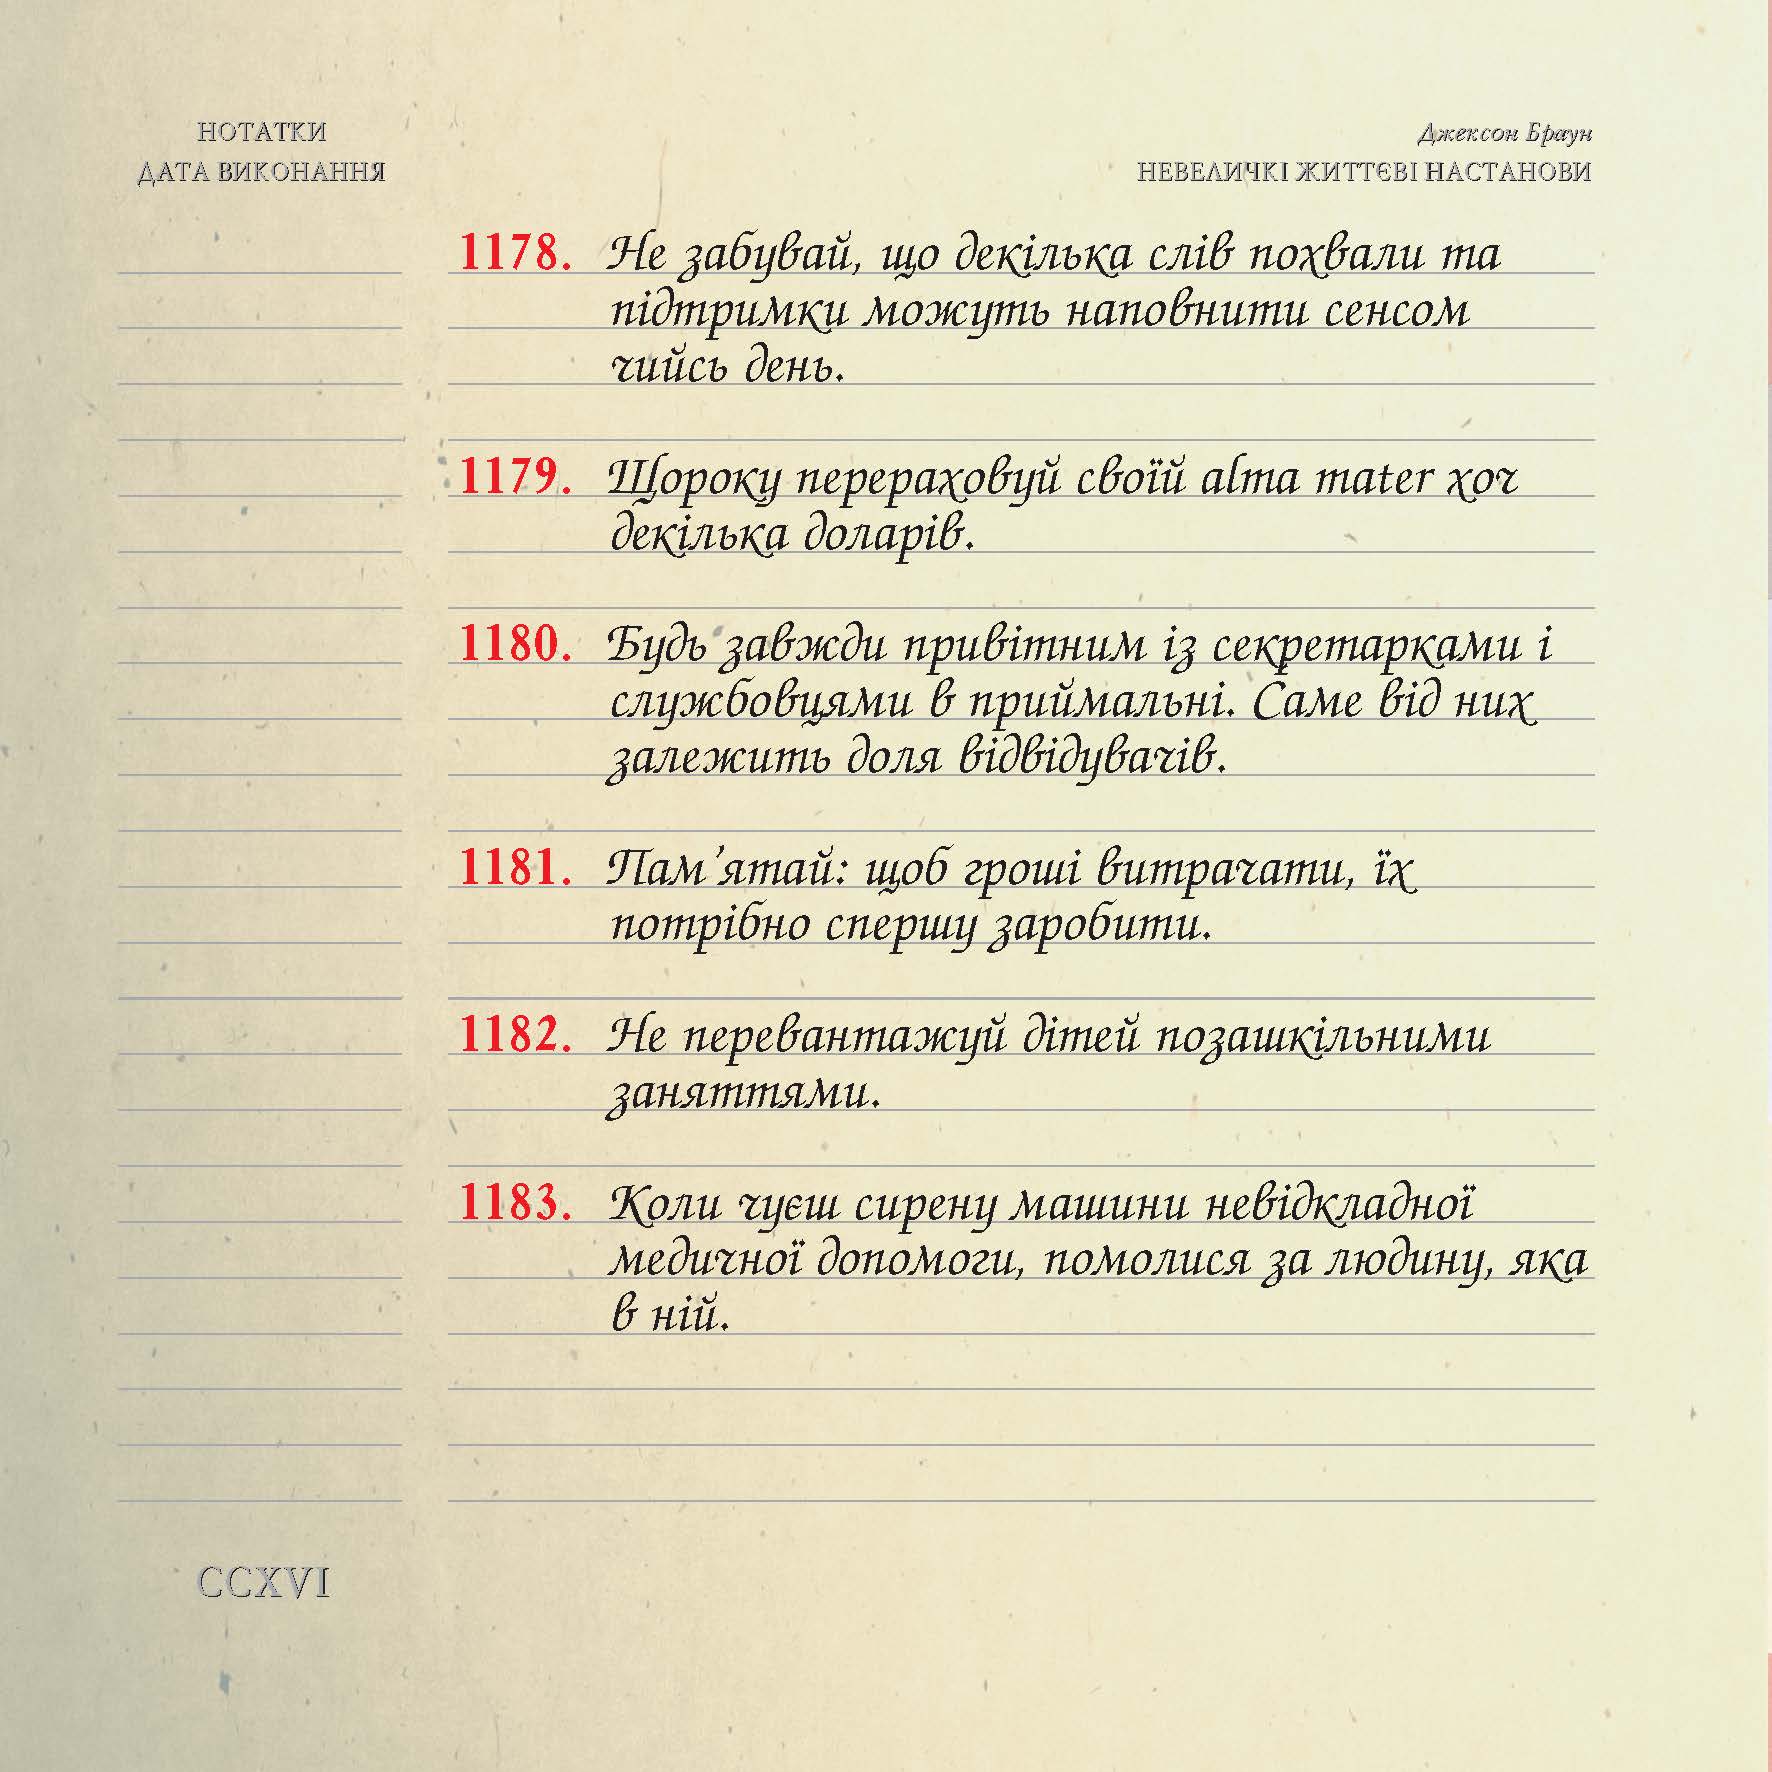 НОТАТКИ
ДАТА ВИКОНАННЯ
Джексон Браун
НЕВЕЛИЧКІ ЖИТТЄВІ НАСТАНОВИ
1178. Не забувай, що декілька слів похвали та
підтримки можуть наповнити сенсом
чийсь день.
1179. Щороку перераховуй своїй alma mater хоч
декілька доларів.
1180. Будь завжди привітним із секретарками і
службовцями в приймальні. Саме від них
залежить доля відвідувачів.
1181. Пам’ятай: щоб гроші витрачати, їх
потрібно спершу заробити.
1182. Не перевантажуй дітей позашкільними
заняттями.
1183. Коли чуєш сирену машини невідкладної
медичної допомоги, помолися за людину, яка
в ній.
CCXVI